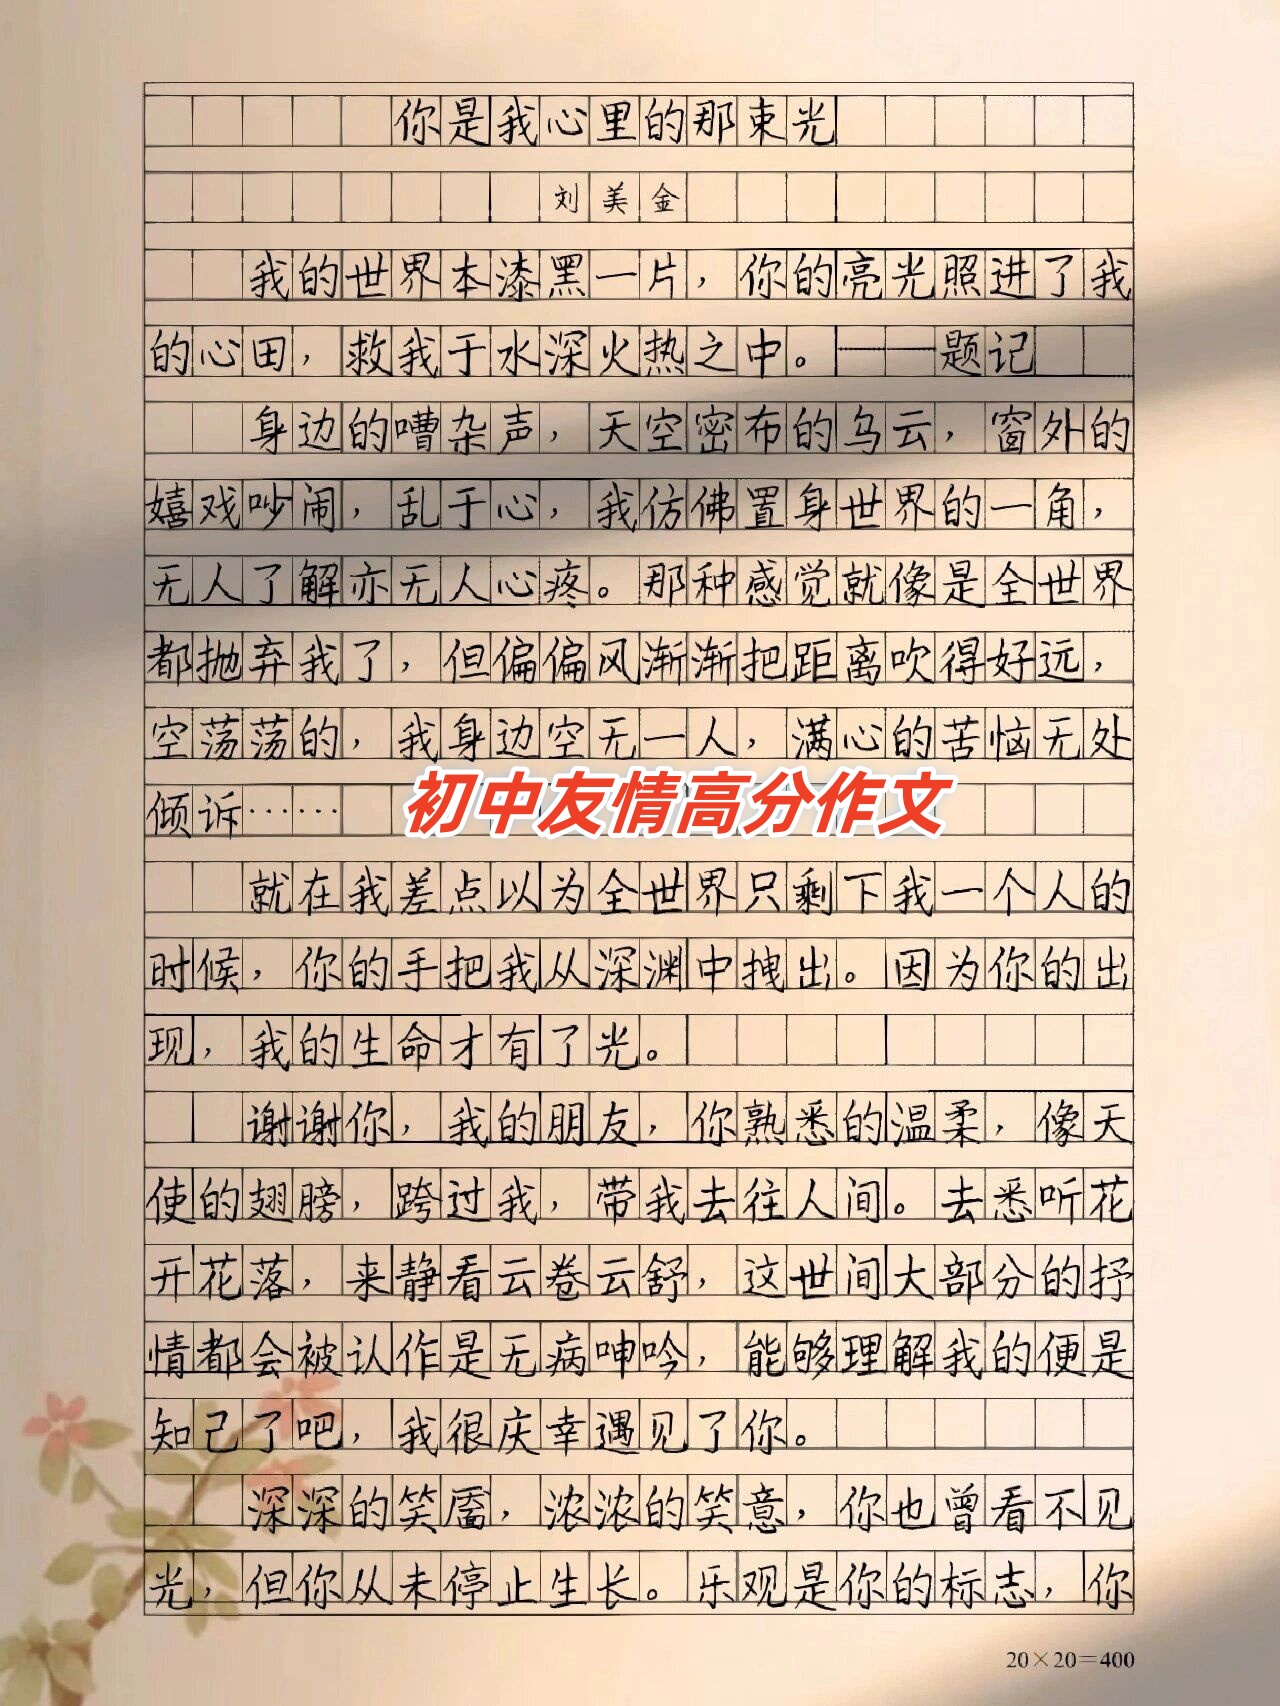 你是我心里的那束光
刘美金
我的世界本漆黑一片，你的亮光照进了我
的心田，救我于水深火热之中。——题记
身边的嘈杂声，天空密布的乌云，窗外的
嬉戏吵闹，乱于心，我仿佛置身世界的一角，
无人了解亦无人心疼。那种感觉就像是全世界
都抛弃我了，但偏偏风渐渐把距离吹得好远，
空荡荡的，我身边空无一人，满心的苦恼无处
倾诉……
初中友情高分作文
就在我差点以为全世界只剩下我一个人的
时候，你的手把我从深渊中拽出。因为你的出
现，我的生命才有了光。
谢谢你，我的朋友，你熟悉的温柔，像天
使的翅膀，跨过我，带我去往人间。去悉听花
开花落，来静看云卷云舒，这世间大部分的抒
情都会被认作是无病呻吟，能够理解我的便是
知己了吧，我很庆幸遇见了你。
深深的笑靥，浓浓的笑意，你也曾看不见
光，但你从未停止生长。乐观是你的标志，你
20×20=400